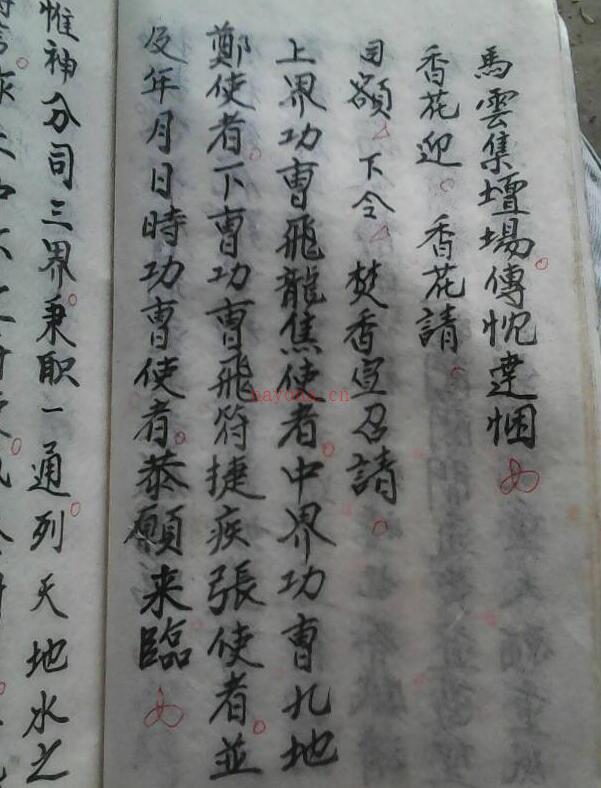 馬雲集壇場傳忱達悃
香花迎 香花請
司額 下令 焚香宣召請
上界功曹飛龍焦使者中界功曹扎地
鄭使者下曹功曹飛符捷疾張使者並
及年月日時功曹使者恭願来臨
惟神分司三界秉职一通列天地水之
nayona.cn